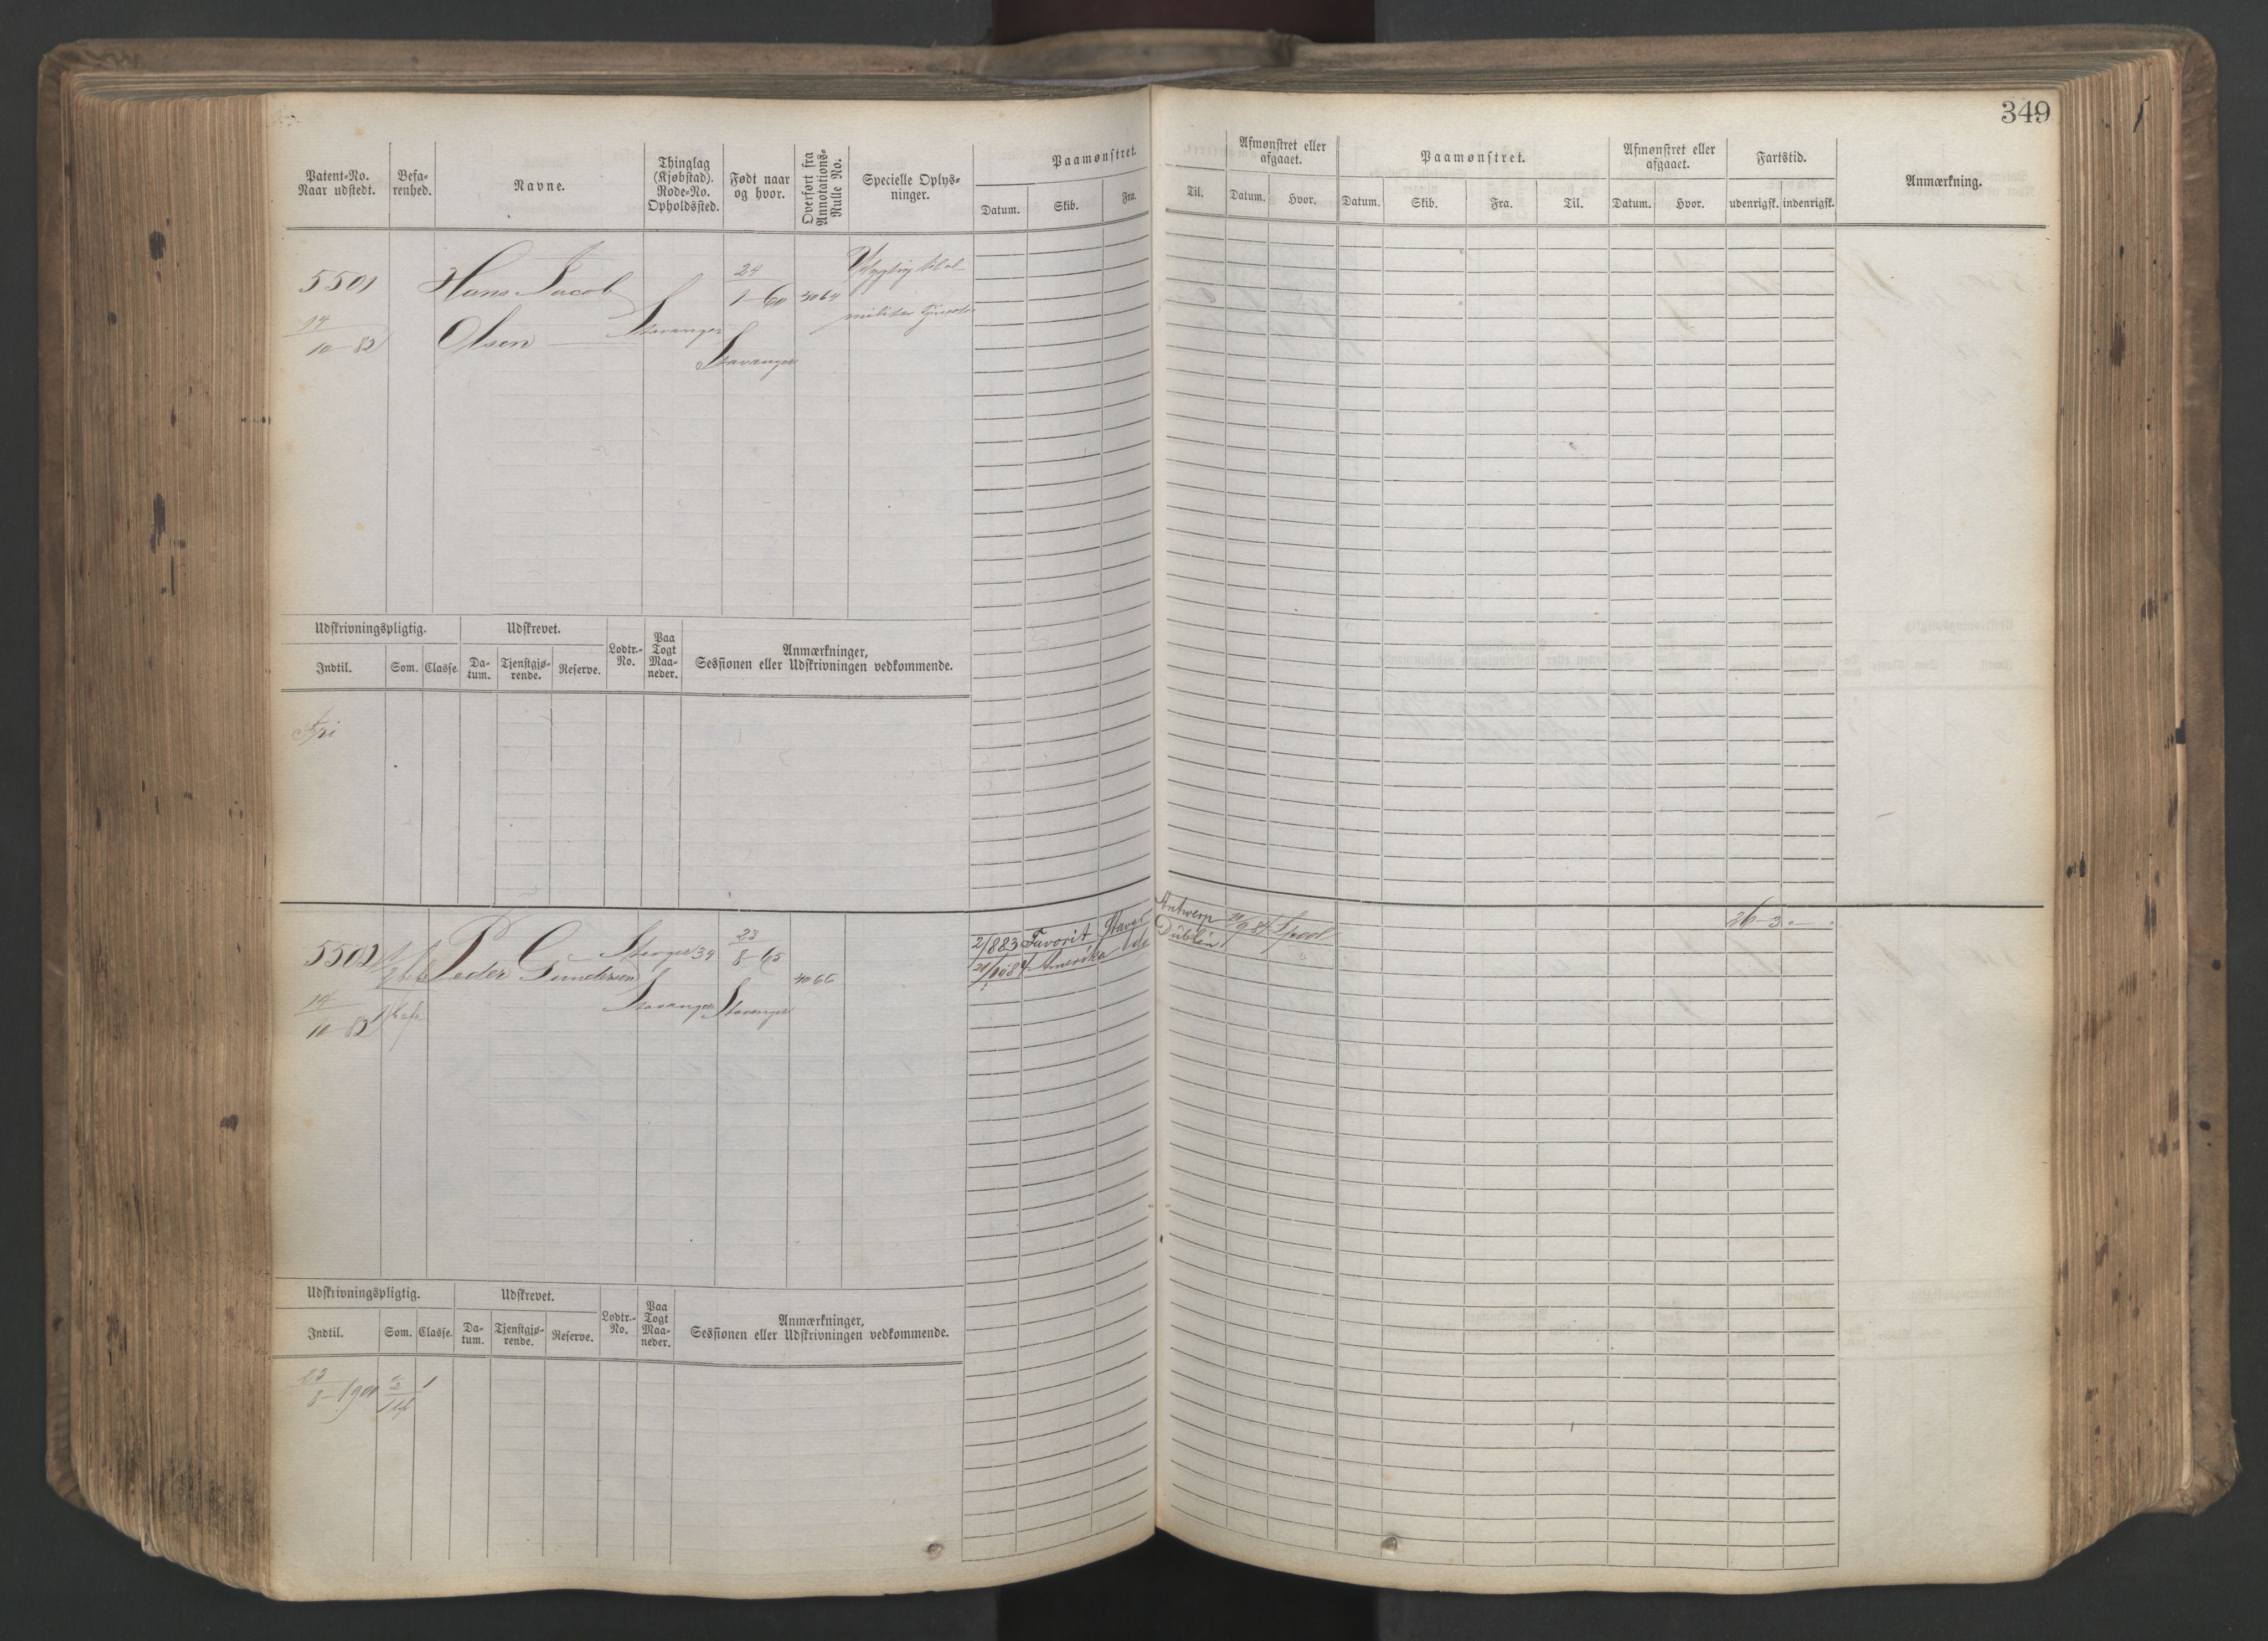 349
Patent-No. Naar udstedt.
Befa-renhed.
Navne.
Thinglag (Kjøbstad). Rode-No. Opholdssted.
Født naar og hvor.
Overført fra Annotations-Rulle No.
Specielle Oplys-ninger.
Paamønstret.
Datum. Skib. Fra. Til.
Afmønstret eller afgaaet.
Datum. Hvor.
Paamønstret.
Datum. Skib. Fra. Til.
Afmønstret eller afgaaet.
Datum. Hvor.
Fartstid.
udenrigsk. indenrigsk.
Anmærkning.
5501
14/10-82
Hans Jacob
Olsen
Stavanger
24/1-60
Stavanger
4064
Udygtig til al
militær
Udskrivningspligtig.
Indtil. Som. Classe.
Udskrevet.
Da-tum. Tjenstgjø-rende. Reserve.
Lodtr.-No.
Paa Togt Maa-neder.
Anmærkninger, Sessionen eller Udskrivningen vedkommende.
Fri
5502
14/10-82
Peder Gundersen
34
Stavanger
23/8-65
Stavanger
4066
2/883 Favorit Antwerp
Amerika do Dublin
26-3
Udskrivningspligtig.
Indtil. Som. Classe.
Udskrevet.
Da-tum. Tjenstgjø-rende. Reserve.
Lodtr.-No.
Paa Togt Maa-neder.
Anmærkninger, Sessionen eller Udskrivningen vedkommende.
23/8-1900
1